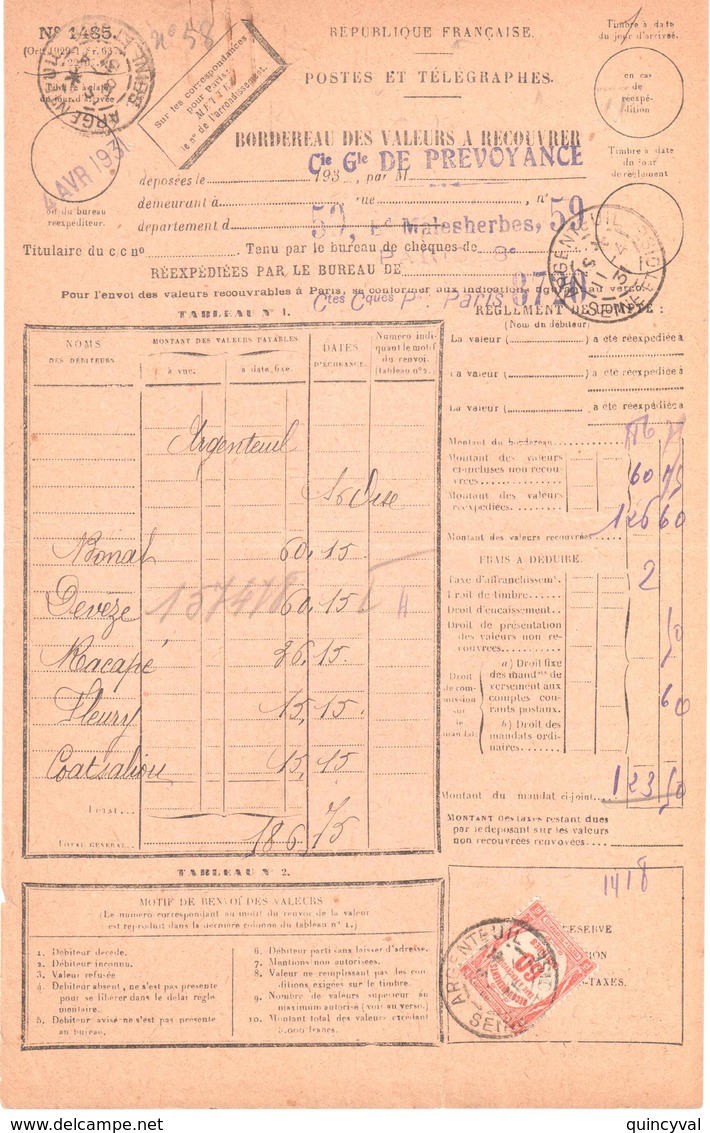 Nº 1485.
nº 58
RÉPUBLIQUE FRANÇAISE.
POSTES ET TÉLÉGRAPHES.
Timbre à date
du jour d'arrivée.
Sur les correspondances
pour Paris,
METTEZ
le nº de l'arrondissement.
en cas
de
réexpé-
dition
Timbre à date
du jour d'arrivée
ARGENTEUIL
4 AVR 1931
ou du bureau
réexpéditeur.
BORDEREAU DES VALEURS A RECOUVRER
Cie Gle DE PREVOYANCE
déposées le 193 , par M
demeurant à rue nº
59, Bd Malesherbes, 59
département d
Timbre à date
du jour
de règlement
ARGENTEUIL
SEINE-ET-OISE
Titulaire du c/c nº Tenu par le bureau de chèques de
RÉEXPÉDIÉES PAR LE BUREAU DE
Pour l'envoi des valeurs recouvrables à Paris, se conformer aux indications figurant au verso.
Ctes Cques Px Paris 6720
TABLEAU Nº 1.
NOMS
DES DÉBITEURS
MONTANT DES VALEURS PAYABLES
à vue.
à date fixe.
DATES
D'ÉCHÉANCE.
Numéro indi-
quant le motif
du renvoi.
(tableau nº 2.)
Argenteuil
S & Oise
Bonal 60,15
Devèze 60,15
157478
Racapé 36,15
Fleury 15,15
Coatsaliou 15,15
TOTAL
TOTAL GÉNÉRAL
186,75
RÈGLEMENT DE COMPTE :
(Nom du débiteur)
La valeur ( ) a été réexpédiée à
La valeur ( ) a été réexpédiée à
La valeur ( ) a été réexpédiée à
Montant du bordereau
Montant des valeurs
ci-incluses non recou-
vrées
60
Montant des valeurs
réexpédiées
Montant des valeurs recouvrées
126 60
FRAIS A DÉDUIRE.
Taxe d'affranchissemt.
2
Frait de timbre
Droit d'encaissement
Droit de présentation
des valeurs non re-
couvrées
50
Droit
de com-
mission
sur
le
mandat
a) Droit fixe
des mandts de
versement aux
comptes cou-
rants postaux.
60
b) Droit des
mandats ordi-
naires
Montant du mandat ci-joint
123 50
MONTANT DES TAXES restant dues
par le déposant sur les valeurs
non recouvrées renvoyées
TABLEAU Nº 2.
MOTIF DE RENVOI DES VALEURS
(Le numéro correspondant au motif du renvoi de la valeur
est reproduit dans la dernière colonne du tableau nº 1.)
1. Débiteur décédé.
2. Débiteur inconnu.
3. Valeur refusée
4. Débiteur absent, ne s'est pas présenté
pour se libérer dans le délai régle-
mentaire.
5. Débiteur avisé ne s'est pas présenté
au bureau.
6. Débiteur parti sans laisser d'adresse.
7. Mentions non autorisées.
8. Valeur ne remplissant pas les con-
ditions exigées sur le timbre.
9. Nombre de valeurs supérieur au
maximum autorisé (voir au verso.)
10. Montant total des valeurs excédant
5.000 francs.
1418
RÉSERVÉ
-TAXES.
ARGENTEUIL
SEINE-ET-OISE
quincyval